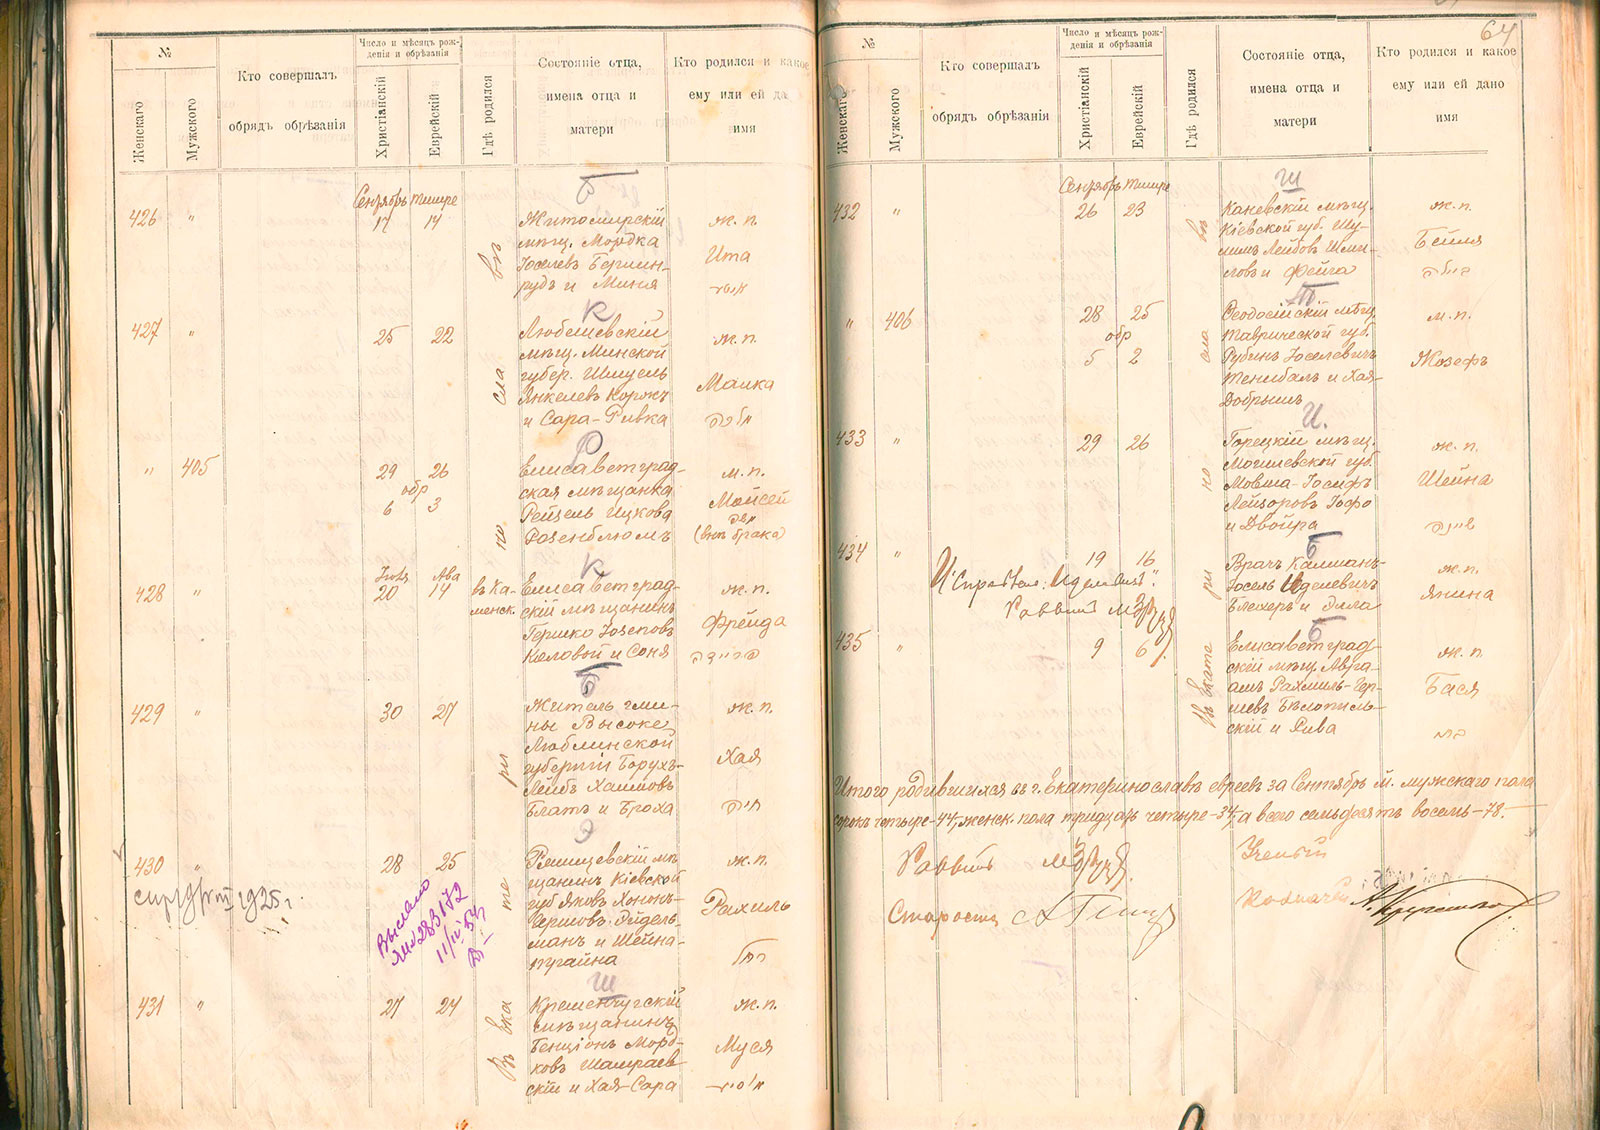 64
№
Женскаго
Мужского
Кто совершалъ
обрядъ обрѣзанія
Число и мѣсяцъ рож-
денія и обрѣзанія
Христіанскій
Еврейскій
Гдѣ родился
Состояніе отца,
имена отца и
матери
Кто родился и какое
ему или ей да
имя
Сентябрь Тишре
Б
426 "
17 14
Житомирскій
мѣщ. Мордка
Іоселевъ Берлин-
рудъ и Миня
ж. п.
Ита
К
427 "
25 22
Любешевскій
мѣщ. Минской
губер. Шмуель
Янкелев
и Сара-Ривка
ж. п.
Малка
מלכה
Р
" 405
29 26
обр
6 3
Елисаветград-
ская мѣщанка
Рейзель Ицкова
Розенблюмъ
м. п.
Мойсей
משה
(внѣ брака)
К
428 "
Іюля Ава
20 14
въ Ка-
менск.
Елисаветград-
скій мѣщанинъ
Гершко Іозеповъ
и Соня
ж. п.
Фрейда
פריידה
Б
429 "
30 27
Житель гми-
ны Высоке
Люблинской
губерніи Борухъ-
Лейбъ Хаимовъ
Блатъ и Броха
ж. п.
Хая
חיה
Э
430 "
28 25
мѣ
щанинъ Кіевской
губ Яковъ Хононъ-
Гершовъ Эйдель-
манъ и Шейна-
ж. п.
Рахиль
רחל
1925 г.
Выслано
283172
11/IV 54
Ш
431 "
27 24
Въ Екатеринославѣ
Кременчугскій
мѣщанинъ
Бенціонъ Морд-
ковъ Шамраев-
скій и Хая-Сара
ж. п.
Муся
№
Женскаго
Мужского
Кто совершалъ
обрядъ обрѣзанія
Число и мѣсяцъ рож-
денія и обрѣзанія
Христіанскій
Еврейскій
Гдѣ родился
Состояніе отца,
имена отца и
матери
Кто родился и какое
ему или ей дано
имя
Сентябрь Тишре
Ш
432 "
26 23
Каневскій мѣщ.
Кіевской губ. Шу-
лимъ Лейбов Шми-
ловъ и Фейга
ж. п.
Бейля
ביילה
П
" 406
28 25
обр
5 2
Ѳеодосійскій мѣщ.
Таврической губ.
Рубинъ Іоселевичъ
и Хая-
Добрышъ
м. п.
Жозефъ
И.
433 "
29 26
Горецкій мѣщ.
Могилевской губ.
Мовша-Іосифъ
Лейзоровъ Іофо
и Двойра
ж. п.
Шейна
שיינה
Б
434 "
19 16
Врач Калман-
Іосель Иделевичъ
Блехеръ и Эйла
ж. п.
Янина
Раввинъ
Б
435 "
9 6
въ Екатеринославѣ
Елисаветград-
скій мѣщ. Авра-
амъ Рахмиль-Гер-
шевъ Бѣлополь-
скій и Рива
ж. п.
Бася
Итого родившихся въ г. Екатеринославѣ евреевъ за Сентябрь м. мужскаго пола
сорокъ четыре-44, женск. пола тридцать четыре-34, а всего семьдесятъ восемь-78.
Раввинъ
Ученый
Староста
Казначей